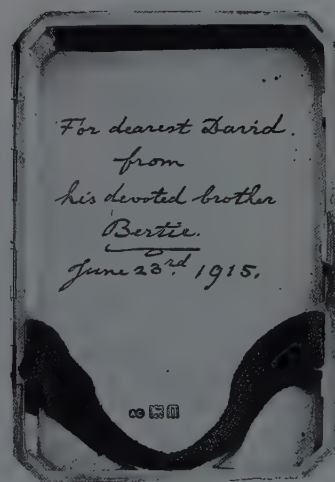 For dearest David.
from
his devoted brother
Bertie.
June 23rd 1915.